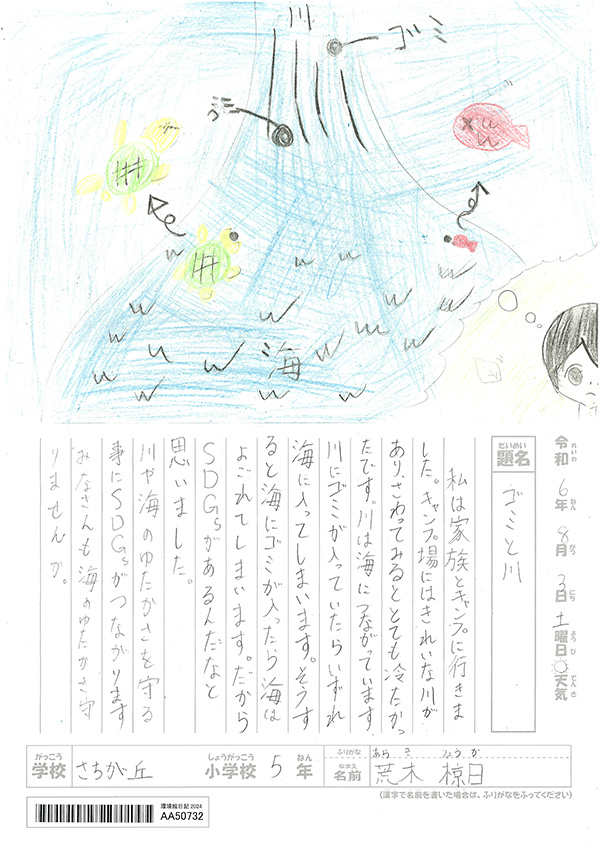 川
ゴミ
ゴミ
海
令和6年8月3日土曜日天気
れいわ ねん がつ にち よう び てん き
だいめい
題名
ゴミと川
私は家族とキャンプに行きま
した。キャンプ場にはきれいな川が
あり、さわってみるととても冷たかっ
たです。川は海につながっています
川にゴミが入っていたらいずれ
海に入ってしまいます。そうす
ると海にゴミが入ったら海は
よごれてしまいます。だから
SDGsがあるんだなと
思いました。
川や海のゆたかさを守る
事にSDGsがつながります
みなさんも海のゆたかさ守
りませんか。
がっこう
学校
さちが丘
しょうがっこう
小学校
5
ねん
年
ふりがな
あら き りょう か
なまえ
名前
荒木 椋日
(漢字で名前を書いた場合は、ふりがなをふってください)
環境絵日記 2024
AA50732